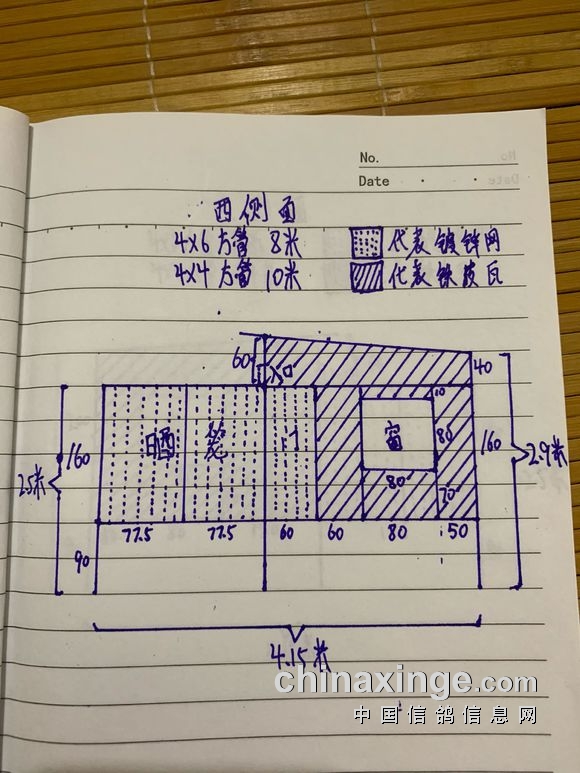 No.
Date
西侧面
4x6方管 8米
代表镀锌网
4x4方管 10米
代表铁皮瓦
60
入口
40
10
晒笼
门
窗
80
160
160
2.5米
2.9米
80
70
77.5 77.5 60 60 80 50
90
4.15米
chinaxinge.com
中国信鸽信息网